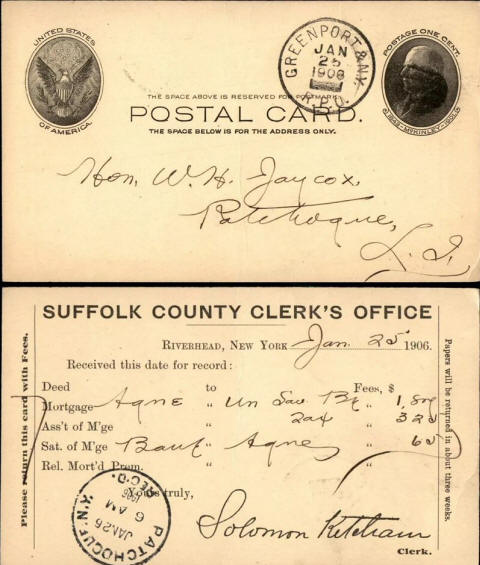 UNITED STATES
OF AMERICA.
GREENPORT & N.Y.
JAN
25
1906
R.P.O.
POSTAGE ONE CENT.
1843-McKINLEY-1901
THE SPACE ABOVE IS RESERVED FOR POSTMARK.
POSTAL CARD.
THE SPACE BELOW IS FOR THE ADDRESS ONLY.
Hon. W. H. Jaycox,
Patchogue,
L. I.
SUFFOLK COUNTY CLERK'S OFFICE
RIVERHEAD, NEW YORK Jan. 25 1906.
Received this date for record:
Deed to Fees, $
Mortgage Agne " Un Sav. Bk "
Ass't of M'ge " "
Sat. of M'ge Bank " Agne "
Rel. Mort'd Prem. " "
Yours truly,
Solomon Ketcham
Clerk.
Please return this card with Fees.
Papers will be returned in about three weeks.
PATCHOGUE N.Y.
JAN 26
6 AM
1906
REC'D.